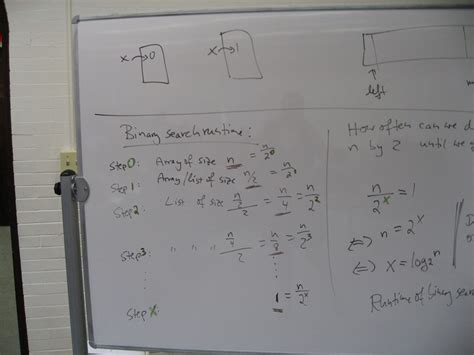 x → 0
x → 1
left
Binary search runtime:
Step 0: Array of size n = n/2^0
Step 1: Array/list of size n/2 = n/2^1
Step 2: List of size (n/2)/2 = n/4 = n/2^2
Step 3: " " " (n/4)/2 = n/8 = n/2^3
⋮
1 = n/2^x
Step x:
How often can we d
n by 2 until we
n/2^x = 1
⇔ n = 2^x
⇔ x = log2 n
Runtime of binary sear